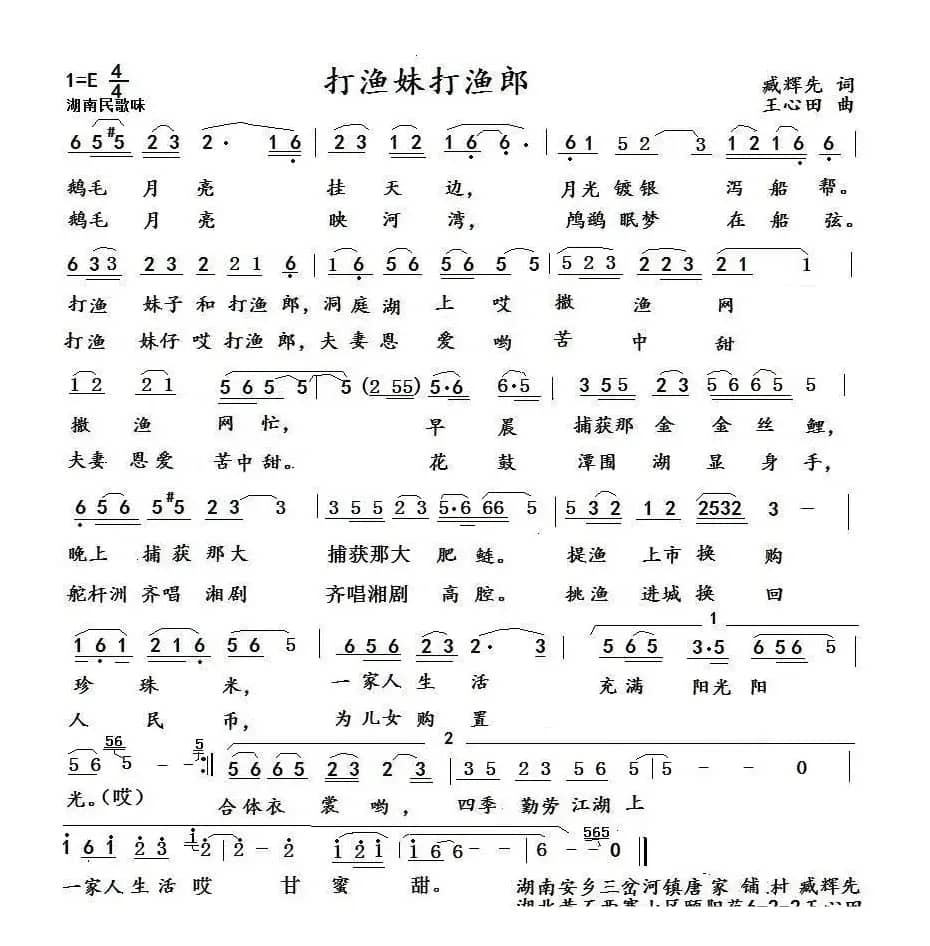 打渔妹打渔郎
1=E 4/4
臧辉先 词
湖南民歌味
王心田 曲
6 5 #5 2 3 2· 1 6 | 2 3 1 2 1 6 6· | 6 1 5 2 3 1 2 1 6 6 |
鹅毛 月 亮 挂 天 边, 月光 镀银 泻 船 帮。
鹅毛 月 亮 映 河 湾, 鸬鹚 眠梦 在 船 弦。
6 3 3 2 3 2 2 1 6 | 1 6 5 6 5 6 5 5 | 5 2 3 2 2 3 2 1 1 |
打渔 妹子 和 打渔 郎, 洞庭 湖 上 哎 撒 渔 网
打渔 妹仔 哎 打渔 郎, 夫妻 恩 爱 哟 苦 中 甜
1 2 2 1 5 6 5 5 | 5 (2 55) 5·6 6·5 | 3 5 5 2 3 5 6 6 5 5 |
撒 渔 网 忙, 早 晨 捕获那 金 金 丝 鲤,
夫妻 恩爱 苦中 甜。 花 鼓 潭围 湖 显 身 手,
6 5 6 5 #5 2 3 3 | 3 5 5 2 3 5·6 66 5 | 5 3 2 1 2 2532 3 – |
晚上 捕 获 那 大 捕获那 大 肥 鲢。 提渔 上市 换 购
舵杆洲 齐唱 湘剧 齐唱湘剧 高 腔。 挑渔 进城 换 回
1
1 6 1 2 1 6 5 6 5 | 6 5 6 2 3 2· 3 | 5 6 5 3·5 6 5 6 5 |
珍 珠 米, 一 家人 生 活 充 满 阳光 阳
人 民 币, 为 儿女 购 置
56 5 2
5 6 5 – – 5 :| 5 6 6 5 2 3 2 3 | 3 5 2 3 5 6 5 | 5 – – 0 |
光。(哎) 合体 衣 裳 哟, 四季 勤劳 江湖 上
i 565
1 6 1 2 3 2 | 2 – · 2 | i 2 i | i 6 6 – – | 6 – – 0 ‖
一家人生活 哎 甘 蜜 甜。
湖南安乡三岔河镇唐家铺村 臧辉先